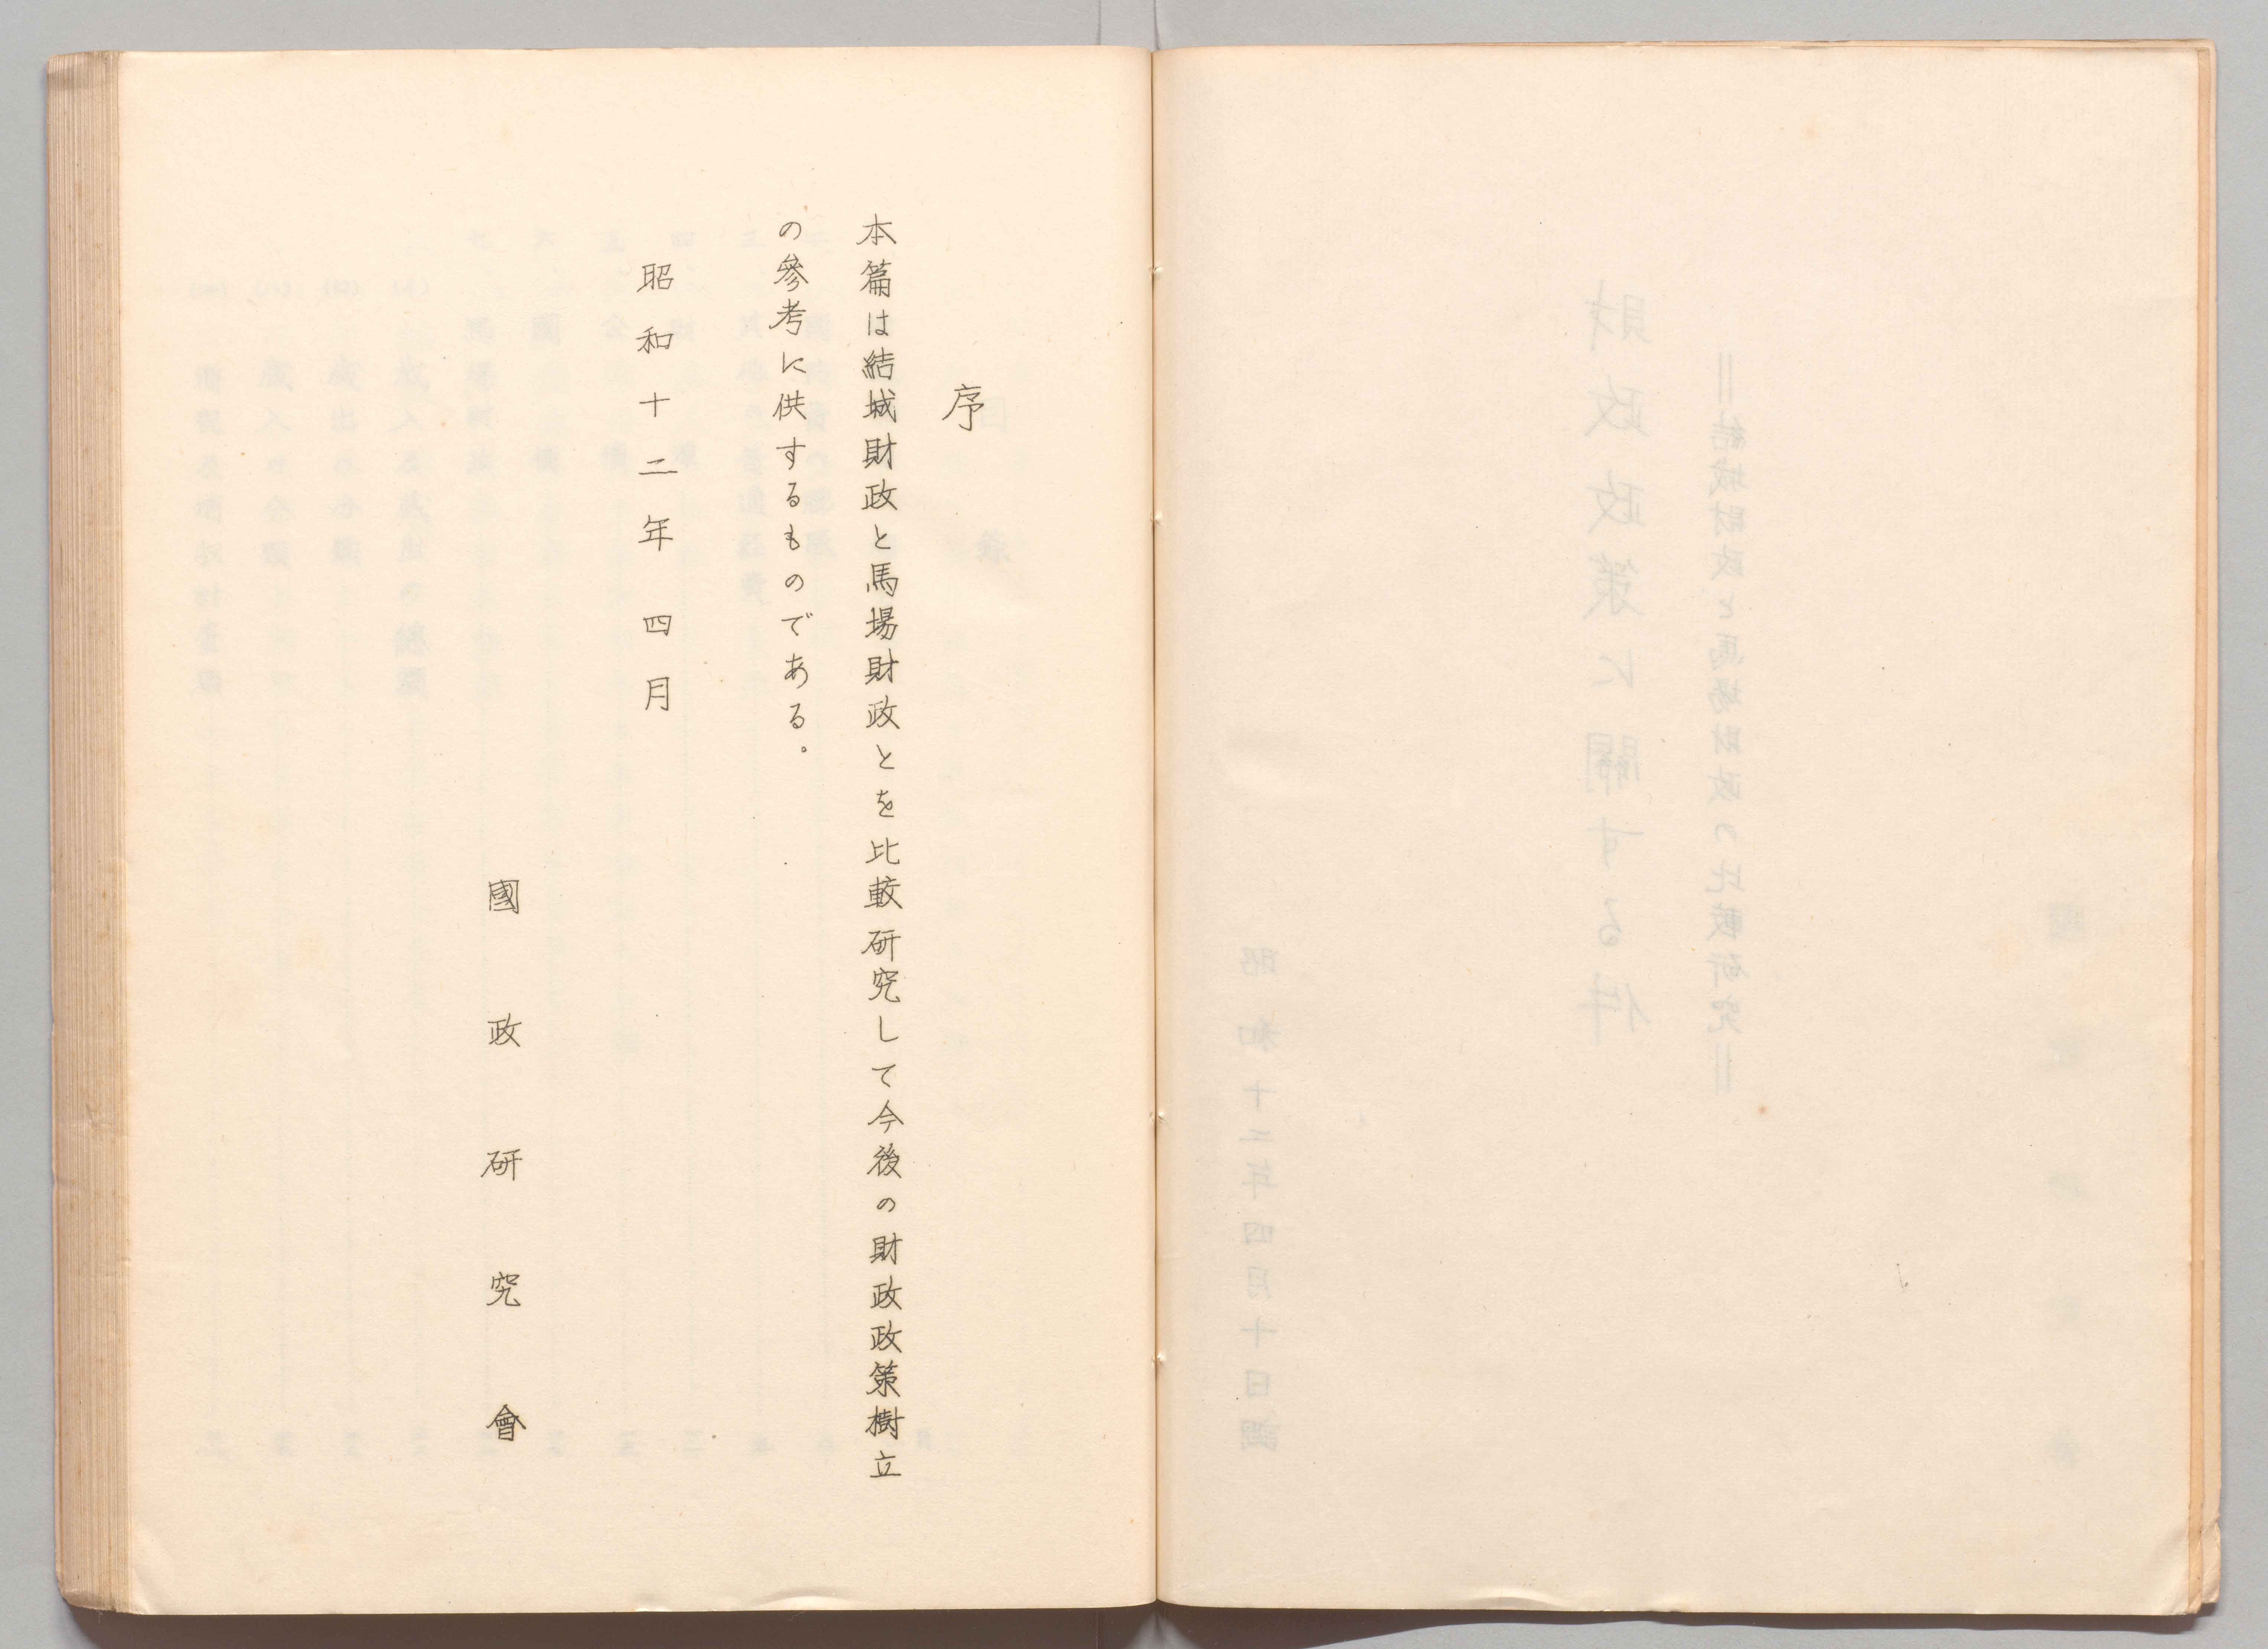 序
本篇は結城財政と馬場財政とを比較研究して今後の財政政策樹立
の參考に供するものである。
昭和十二年四月
國政研究會